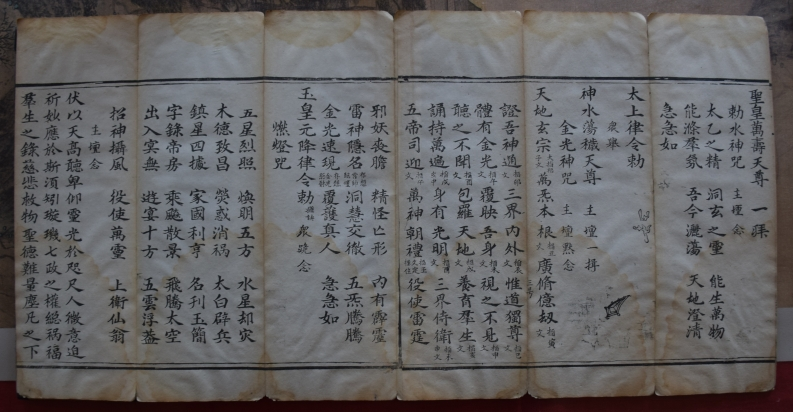 聖皇萬壽天尊 一踩
勅水神咒 主壇念
太乙之精 洞玄之靈 能生萬物
能滌羣氛 吾今灑蕩 天地澄清
急急如
太上律令勅
衆舉
神水蕩穢天尊 主壇一揖
金光神咒 主壇㸃念
天地玄宗 萬炁本根 廣脩億刼
證吾神通 三界内外 惟道獨尊
體有金光 覆映吾身 視之不見
聽之不聞 包羅天地 養育羣生
誦持萬遍 身有光明 三界侍衛
五帝司迎 萬神朝禮 役使雷霆
邪妖喪膽 精怪亡形 内有霹靂
雷神隱名 洞慧交徹 五炁騰騰
金光速現 覆護真人 急急如
玉皇元降律令勅 衆唸念
燃燈咒
五星烈照 煥明五方 水星却灾
木德致昌 熒惑消禍 太白辟兵
鎮星四據 家國利亨 名刊玉簡
字錄帝房 乘飈散景 飛騰太空
出入冥無 遊宴十方 五雲浮蓋
招神攝風 役使萬靈 上衛仙翁
主壇念
伏以天高聽卑仰靈光於咫尺人微意迫
祈妙應於斯須切璇璣七政之權綰禍福
羣生之錄慈悲救物聖德難量塵凡之下